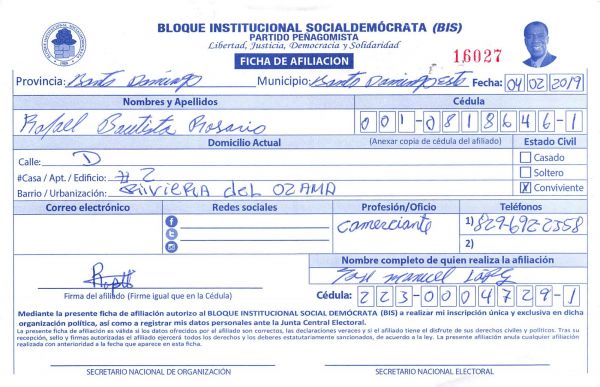 BLOQUE INSTITUCIONAL SOCIALDEMÓCRATA (BIS)
PARTIDO PEÑAGOMISTA
Libertad, Justicia, Democracia y Solidaridad
FICHA DE AFILIACION
16027
Provincia: Santo Domingo Municipio: Santo Domingo Este Fecha: 04 02 2019
Nombres y Apellidos Cédula
Rafael Bautista Rosario 001-0818646-1
Domicilio Actual (Anexar copia de cédula del afiliado) Estado Civil
Calle: D Casado
#Casa / Apt. / Edificio: # 2 Soltero
Barrio / Urbanización: Riviera del OZAMA X Conviviente
Correo electrónico Redes sociales Profesión/Oficio Teléfonos
comerciante 1) 829-692-2358
2)
Nombre completo de quien realiza la afiliación
José manuel López
Firma del afiliado (Firme igual que en la Cédula) Cédula: 223-0004729-1
Mediante la presente ficha de afiliación autorizo al BLOQUE INSTITUCIONAL SOCIAL DEMÓCRATA (BIS) a realizar mi inscripción única y exclusiva en dicha
organización política, así como a registrar mis datos personales ante la Junta Central Electoral.
La presente ficha de afiliación es válida si los datos ofrecidos por el afiliado son correctos, las declaraciones veraces y si el afiliado tiene el disfrute de sus derechos civiles y políticos. Tras su
recepción, sello y firmas autorizadas el afiliado ejercerá todos los derechos y los deberes estatutariamente sancionados, de acuerdo a la ley. La presente afiliación anula cualquier afiliación
realizada con anterioridad a la fecha que aparece en esta ficha.
SECRETARIO NACIONAL DE ORGANIZACIÓN SECRETARIO NACIONAL ELECTORAL